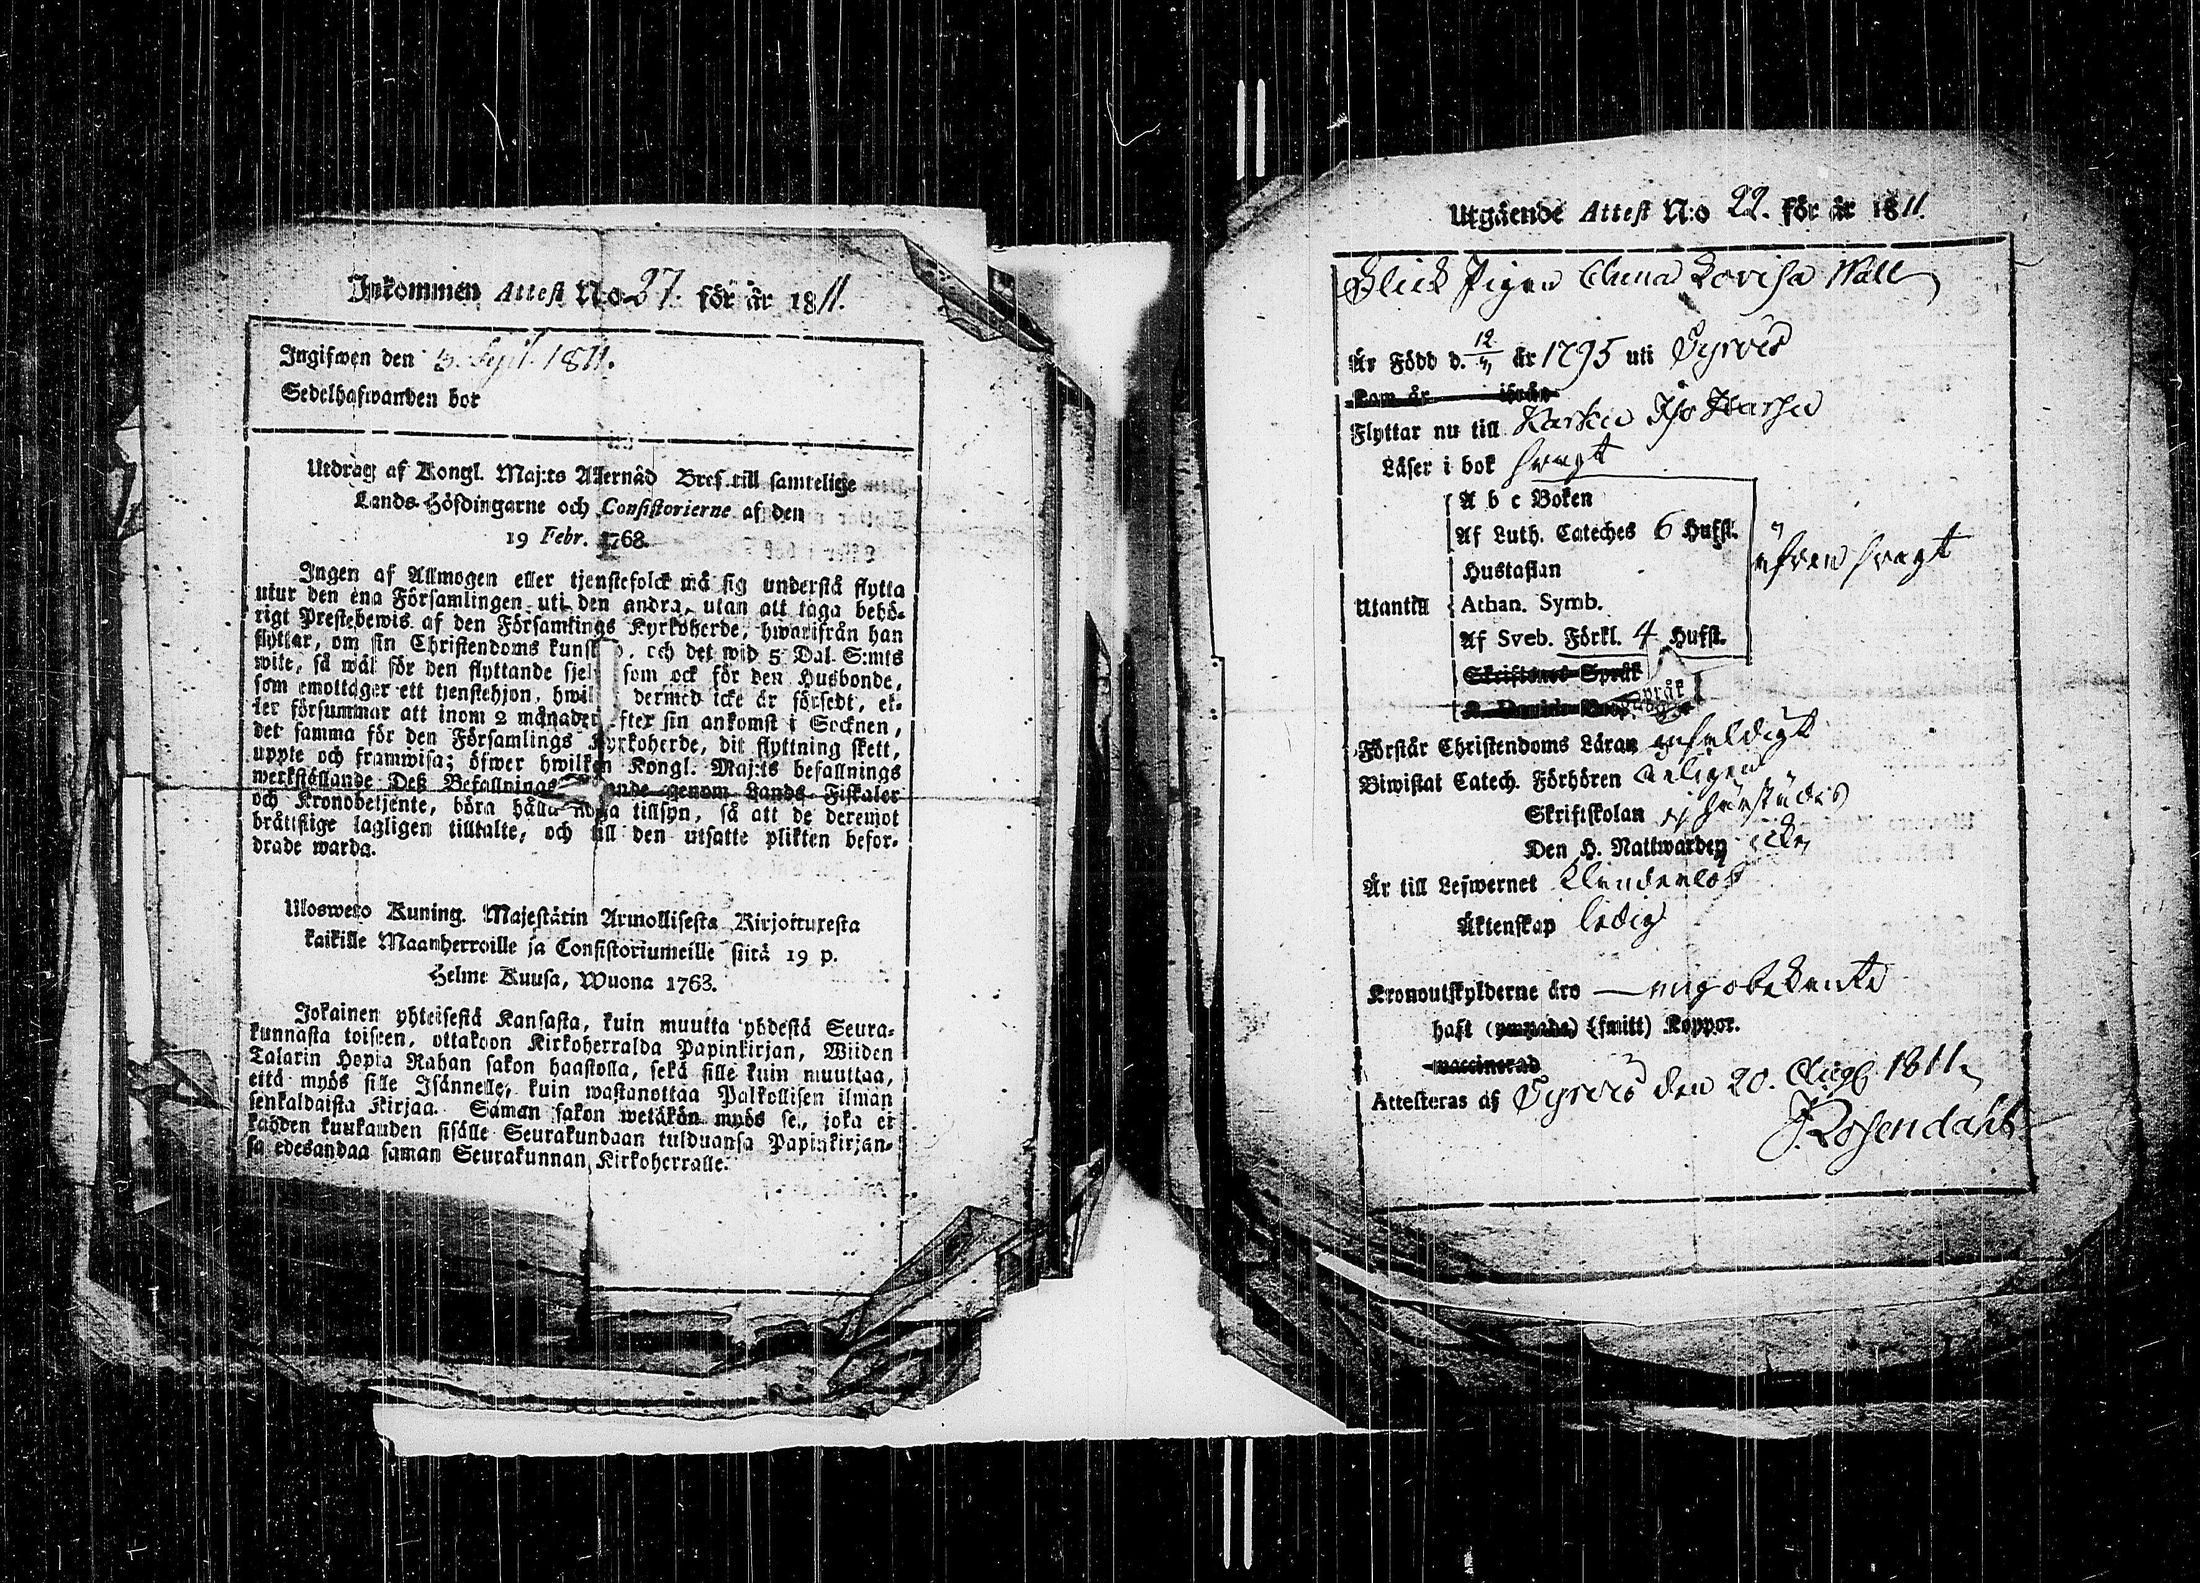 Inkommen Attest N:o 37. för år 1811.
Ingifwen den 5. Sept. 1811.
Sedelhafwanden bor
Utdrag af Kongl. Maj:ts Allernåd Bref till samtelige
Lands-Höfdingarne och Consistorierne af den
19 Febr. 1768.
Ingen af Allmogen eller tjenstefolck må sig understå flytta
utur den ena Församlingen uti den andra, utan att taga behö-
rigt Prestebewis af den Församlings Kyrkoherde, hwarifrån han
flyttar, om sin Christendoms och det wid 5 Dal. S:mts
wite, så wäl för den flyttande som ock för den Husbonde,
som emottager ett tjenstehjon, dermed icke är försedt, el-
ler försummar att inom 2 månader efter sin ankomst i Socknen,
det samma för den Församlings Kyrkoherde, dit flyttning skett,
uppte och framwisa; öfwer hwilken Kongl. Maj:ts befallnings
werkställande Deß genom Lands-Fiskaler
och Kronobetjente, böra hålla noga tillsyn, så att de deremot
bråttslige lagligen tilltalte, och till den utsatte plikten befor-
drade warda.
Uloswero Kuning. Majestätin Armollisesta Kirjoituxesta
kaikille Maanherroille ja Consistoriumeille siitä 19 p.
Helme Kuusa, Wuona 1763.
Jokainen yhteisestä Kansasta, kuin muutta yhdestä Seura-
kunnasta toiseen, ottakoon Kirkoherralda Papinkirjan, Wiiden
Talarin Hopia Rahan sakon haastolla, sekä sille kuin muuttaa,
että myös sille Isännelle, kuin wastanottaa Palkollisen ilman
senkaldaista Kirjaa. Saman sakon wetäkön myös se, joka ei
kahden kuukauden sisälle Seurakundaan tulduansa Papinkirjan-
sa edesandaa saman Seurakunnan Kirkoherralle.
Utgående Attest N:o 22. för år 1811.
Pigan Lovisa Wall
Är Född d. 12/ år 1795 uti Sysmä
Kam år ifrån
Flyttar nu till
Läser i bok swagt
A b c Boken
Af Luth. Cateches 6 Hufst.
äfwen swagt
Hustaflan
Utantill Athan. Symb.
Af Sveb. Förkl. 4 Hufst.
Skriftenes Språk
Förstår Christendoms Läran enfaldigt
Biwistat Catech. Förhören
Skriftskolan ej härstädes
Den H. Nattwarden icke
Är till Lefwernet
Äktenskap ledig
Kronoutskylderne äro — mig obekante
haft (ympade) (smitt) Koppor.
vaccinerad
Attesteras af den 20. Aug. 1811.
J. Rosendahl